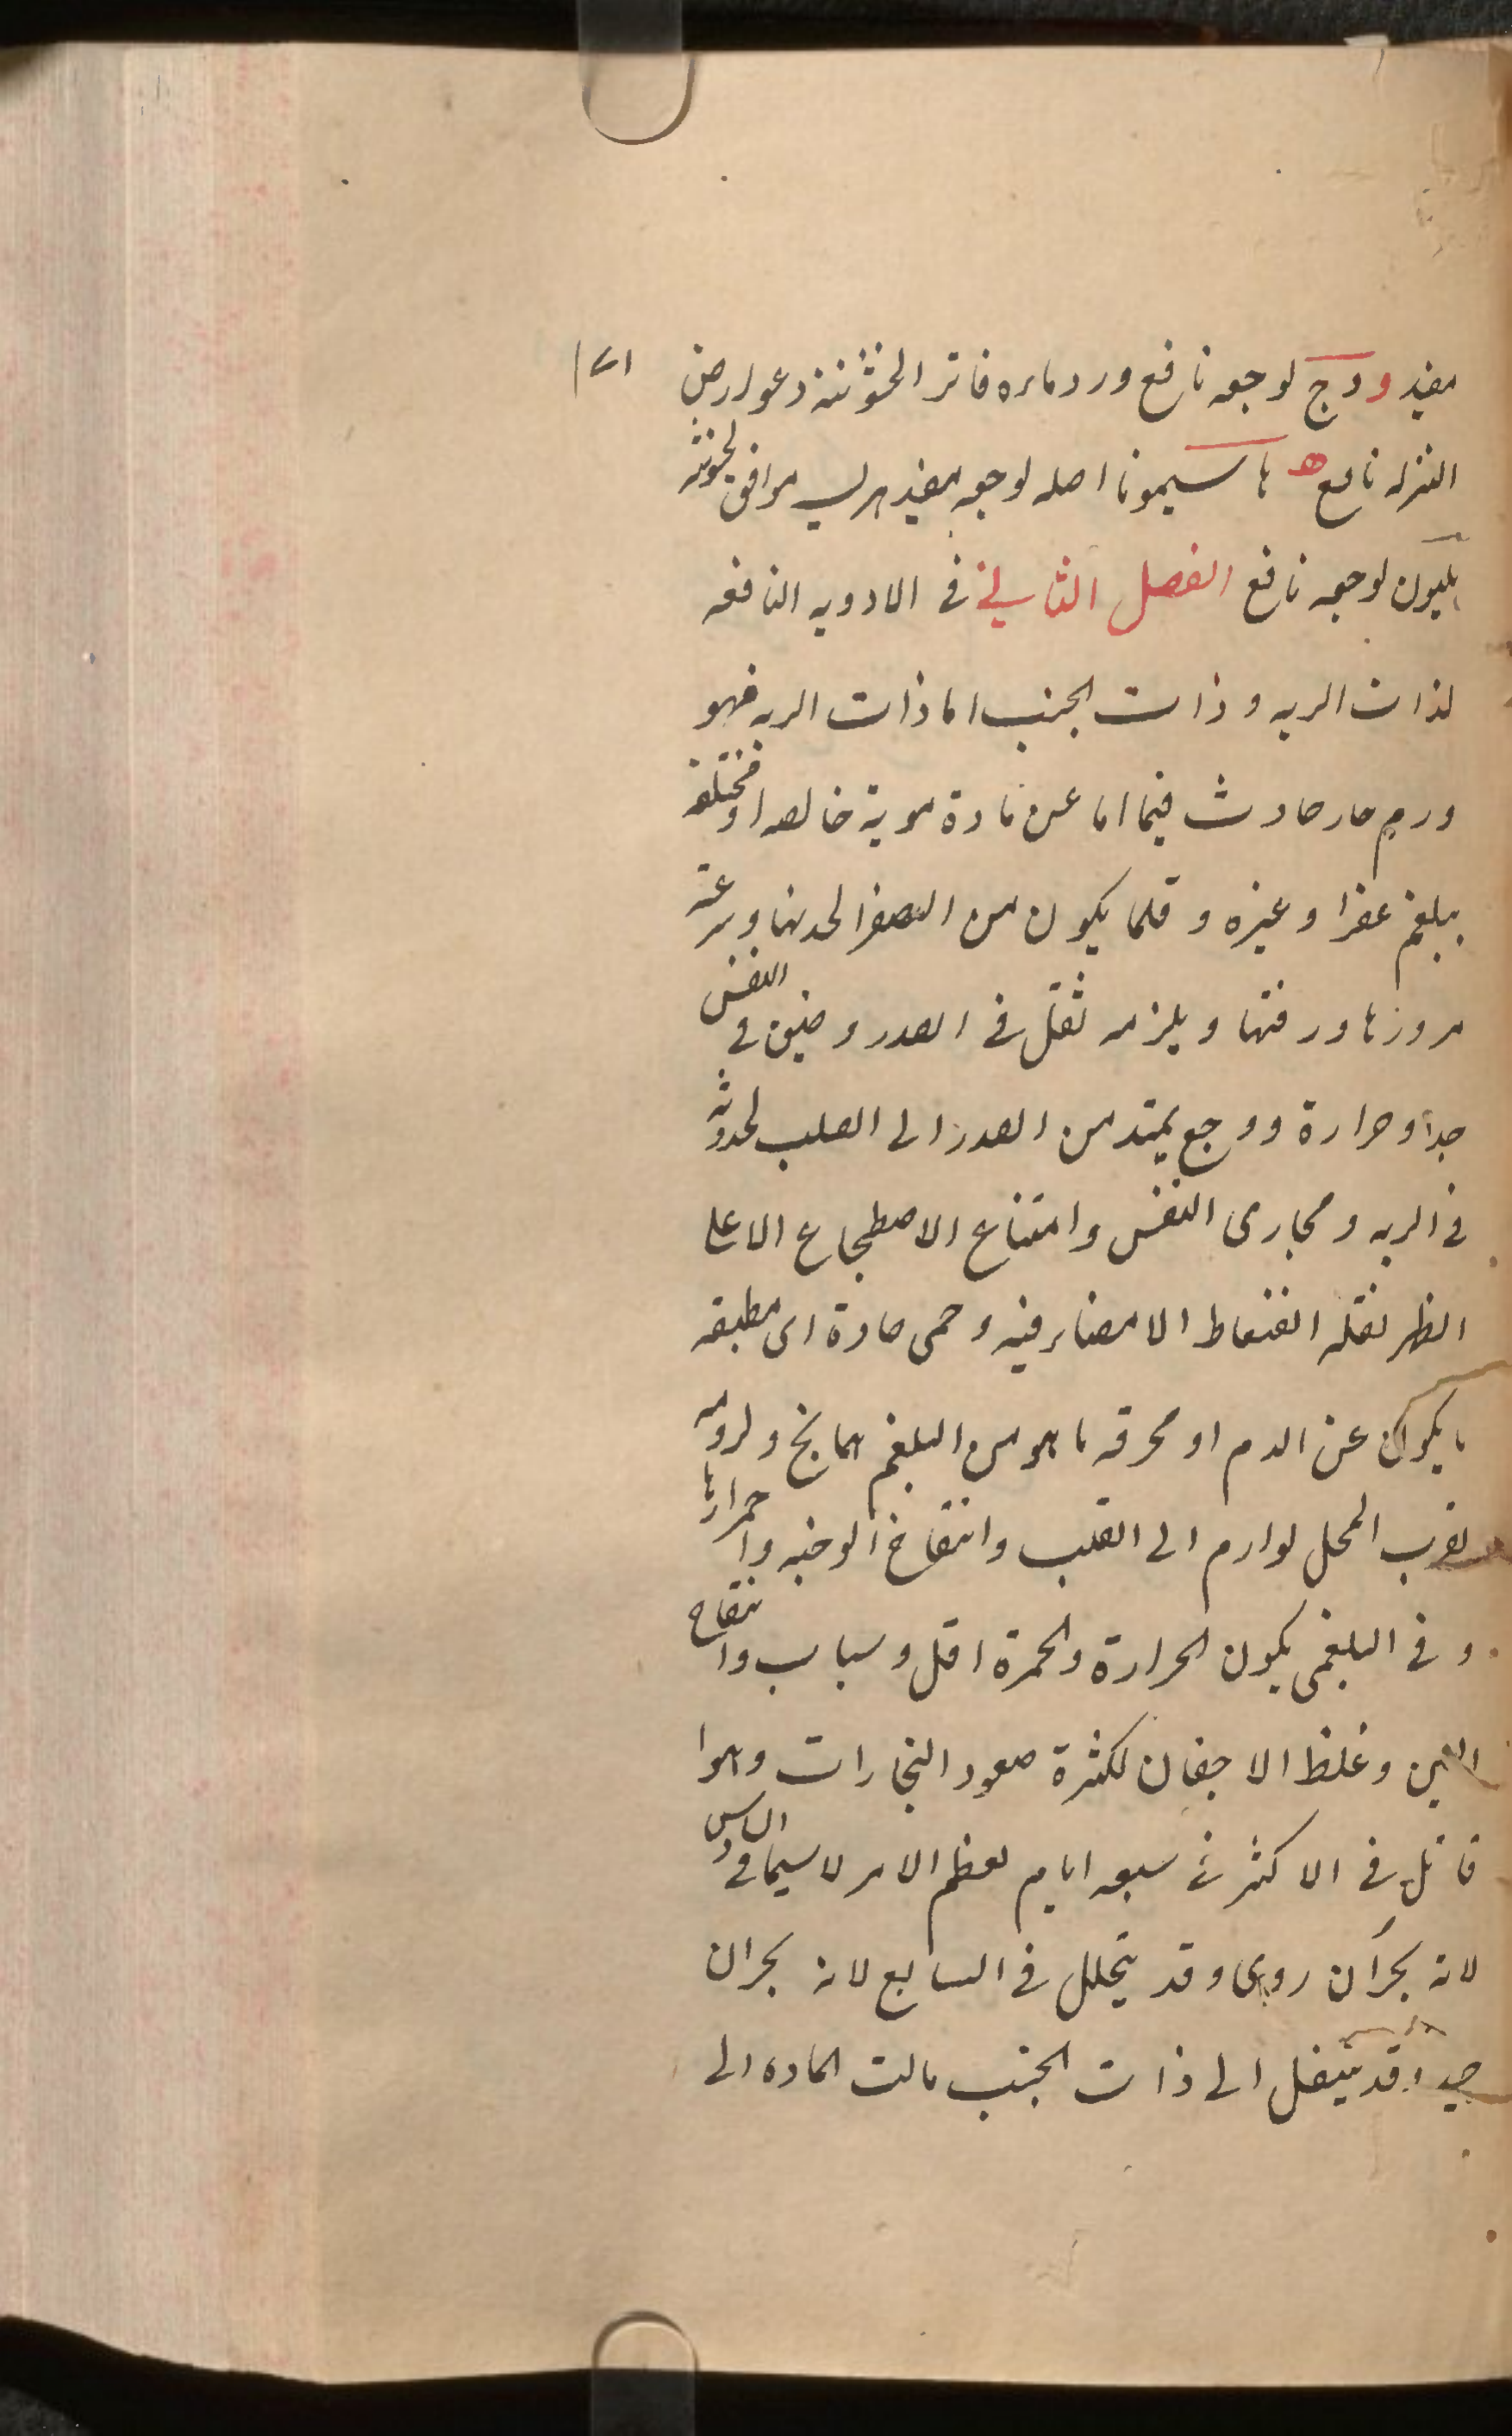 مفيد وج لوجعه نافع ورد ماءه فاتر الخشونته دعوارض
النزله نافع ه هاسيمونا اصله لوجعه مفيد مرى موافق لخشونته
بليون لوجعه نافع الفصل الثاني في الادويه النافعه
لذات الريه وذات الجنب اما ذات الريه فهو
ورم حار حادث فيها اما عن مادة موية خالصه او مختلفه
ببلغم عفرا وغيره وقلما يكون من الصفرا لحدتها وسرعة
مروزها ورقتها ويلزمه ثقل في الصدر وضيق في النفس
جدا وحرارة ووجع يمتد من الصدر الى الصلب لحدوثه
في الريه ومجارى النفس وامتناع الاضطجاع الا على
الظهر لقلة انضغاط الا مصاير فيه وحمى حادة اى مطبقه
ما يكون عن الدم او محرقه ما هو من البلغم المالح ولزومه
لقرب المحل لوارم الى القلب وانتفاخ الوجنه واحمرارها
وفي البلغمى يكون الحرارة والحمرة اقل وسباب وانتفاخ
العين وغلظ الاجفان لكثرة صعود البخارات وهوا
قاتل في الاكثر في سبعه ايام لعظم الامر لا سيما في السادس
لانه بحران روى وقد يتحلل في السابع لانه بحران
جيد وقد ينتقل الى ذات الجنب مالت الماده الى